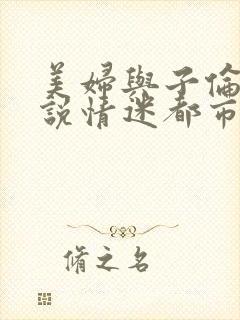 美婦與子倫
說情迷都市
脩之名